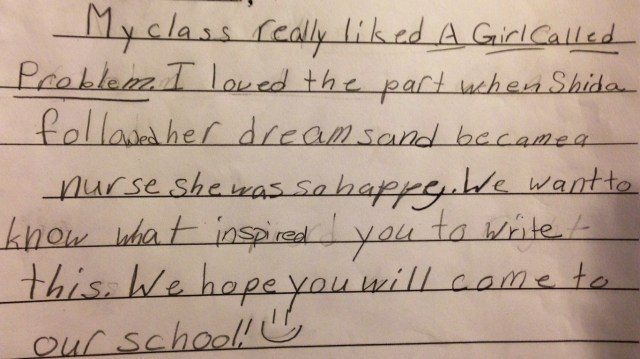 My class really liked A Girl Called
Problem. I loved the part when Shida
followed her dreams and became a
nurse she was so happy. We want to
know what inspired you to write
this. We hope you will come to
our school!